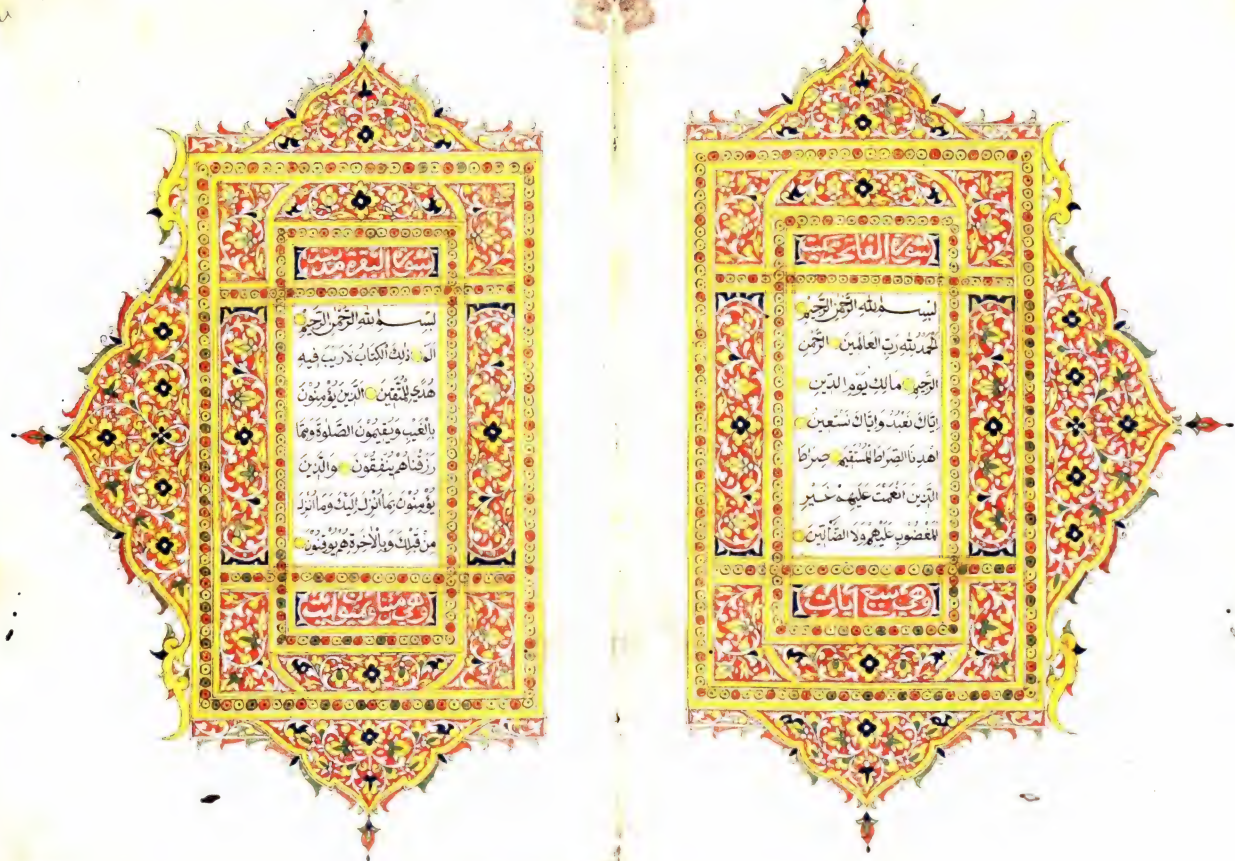 سورة الفاتحة
بسم الله الرَّحْمٰنِ الرَّحِيْمِ
اَلْحَمْدُ لِلّٰهِ رَبِّ الْعَالَمِيْنَ الرَّحْمٰنِ
الرَّحِيْمِ مَالِكِ يَوْمِ الدِّيْنِ
اِيَّاكَ نَعْبُدُ وَاِيَّاكَ نَسْتَعِيْنُ
اِهْدِنَا الصِّرَاطَ الْمُسْتَقِيْمَ صِرَاطَ
الَّذِيْنَ اَنْعَمْتَ عَلَيْهِمْ غَيْرِ
الْمَغْضُوْبِ عَلَيْهِمْ وَلَا الضَّآلِّيْنَ
وهي سبع آيات
سورة البقرة مدنية
بسم الله الرَّحْمٰنِ الرَّحِيْمِ
الٓمٓ ذٰلِكَ الْكِتَابُ لَارَيْبَ فِيْهِ
هُدًى لِّلْمُتَّقِيْنَ الَّذِيْنَ يُؤْمِنُوْنَ
بِالْغَيْبِ وَيُقِيْمُوْنَ الصَّلٰوةَ وَمِمَّا
رَزَقْنَاهُمْ يُنْفِقُوْنَ وَالَّذِيْنَ
يُؤْمِنُوْنَ بِمَآ اُنْزِلَ اِلَيْكَ وَمَآ اُنْزِلَ
مِنْ قَبْلِكَ وَبِالْاٰخِرَةِ هُمْ يُوْقِنُوْنَ
وهي مئتان